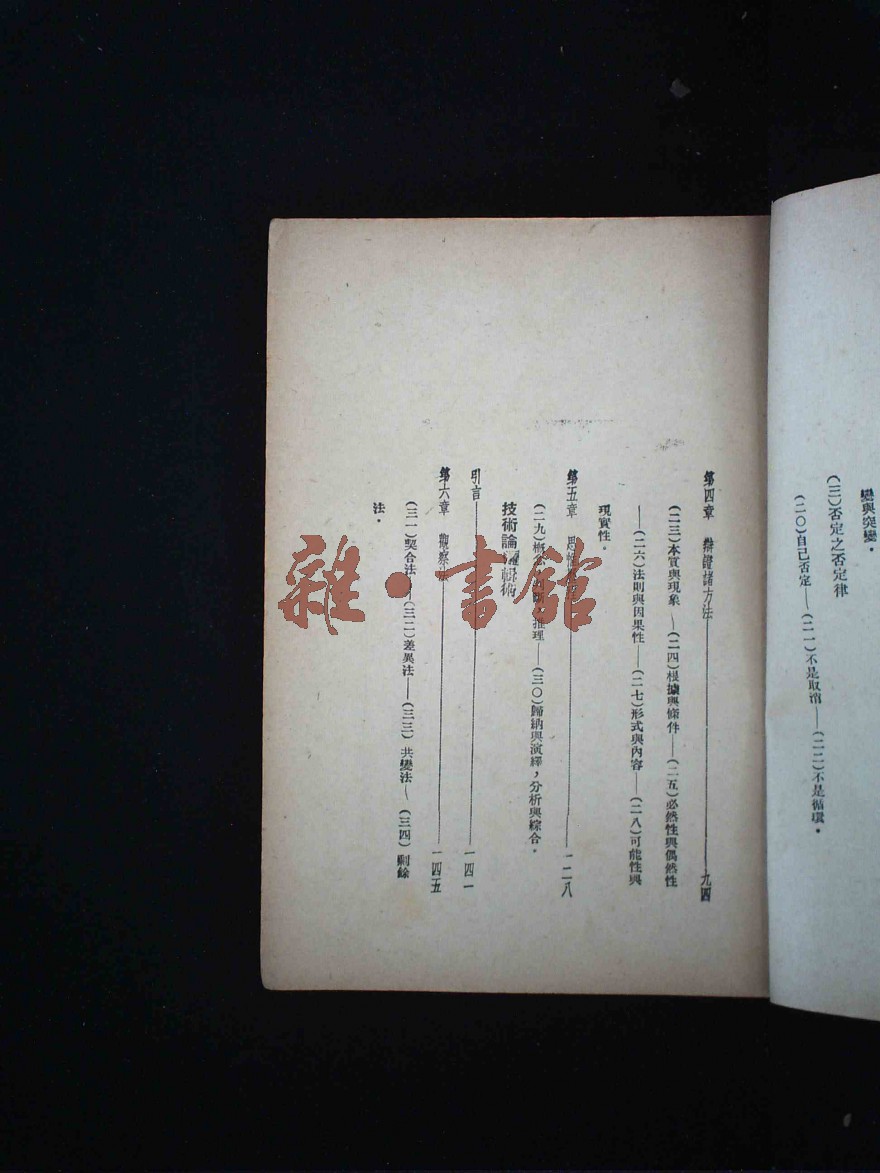 變與突變。
(三)否定之否定律
(二〇)自己否定——(二一)不是取消——(二二)不是循環。
第四章 辯證諸方法——九四
(二三)本質與現象—(二四)根據與條件——(二五)必然性與偶然性
——(二六)法則與因果性——(二七)形式與內容——(二八)可能性與
現實性。
第五章 思——一二八
(二九)概念 推理——(三〇)歸納與演繹,分析與綜合。
技術論 術
引言——一四一
第六章 觀察法——一四五
(三一)契合法——(三二)差異法——(三三)共變法—(三四)剩餘
法。
雜·書館